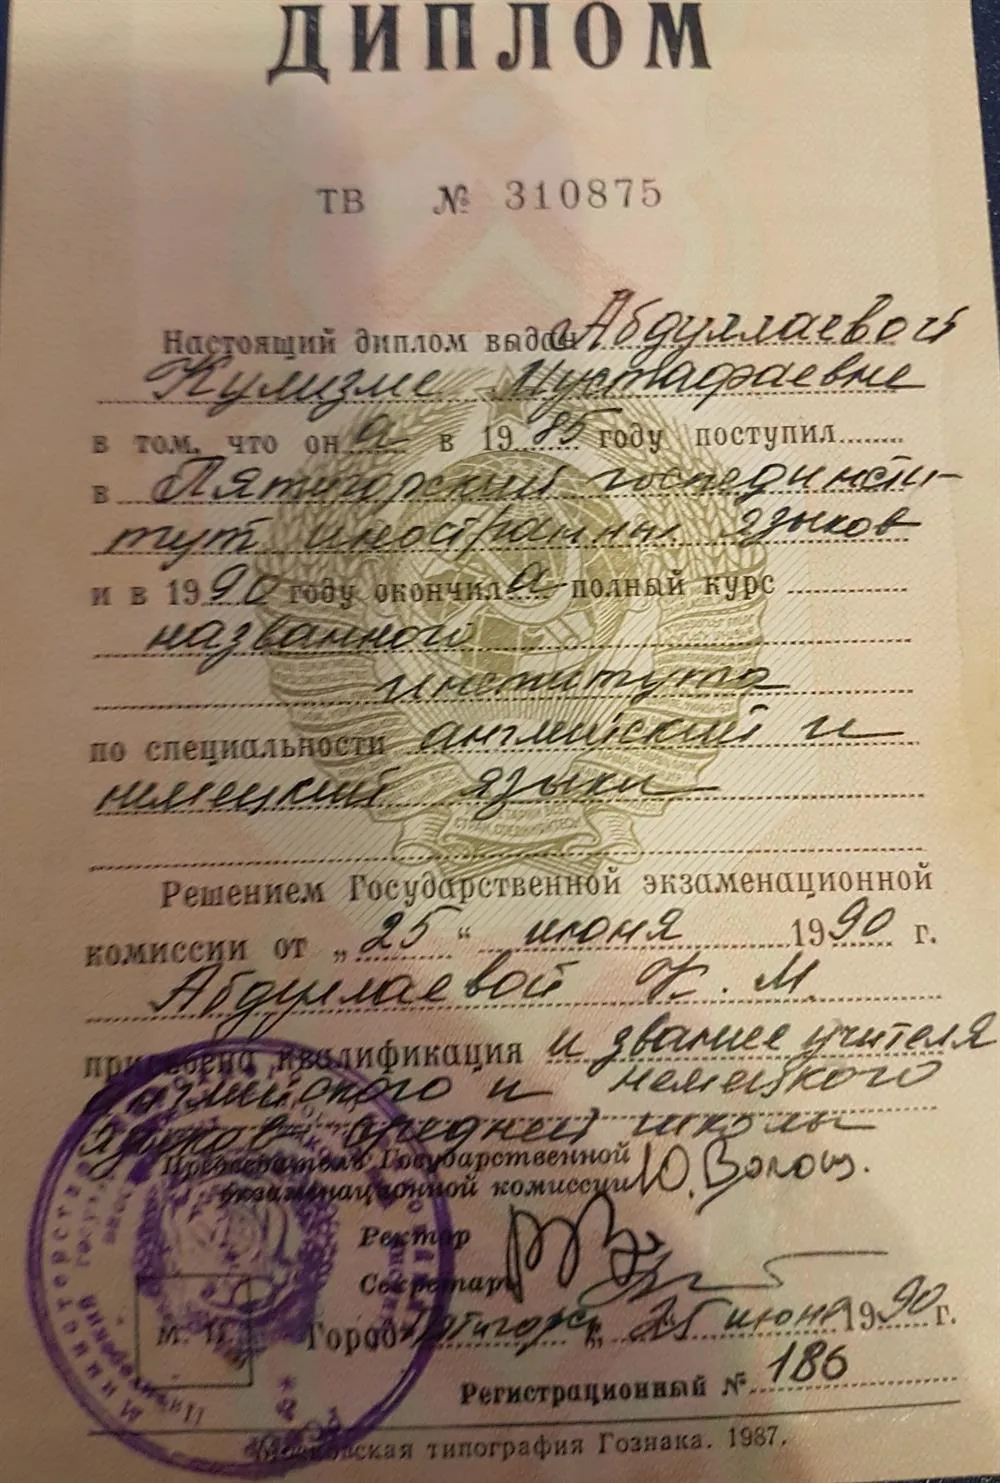 ДИПЛОМ
ТВ № 310875
Настоящий диплом выдан Абдуллаевой
Кулизме Мустафаевне
в том, что она в 1985 году поступил
в Пятигорский госпединсти-
тут иностранных языков
и в 1990 году окончила полный курс
названного
института
по специальности английский и
немецкий языки
Решением Государственной экзаменационной
комиссии от „25“ июня 1990 г.
Абдуллаевой К. М.
присвоена квалификация и звание учителя
английского и немецкого
языков средней школы
Председатель Государственной
экзаменационной комиссии Ю. Волош.
Ректор
Секретарь
М. П. Город Пятигорск „25 июня 1990 г.
Регистрационный № 186
Московская типография Гознака. 1987.